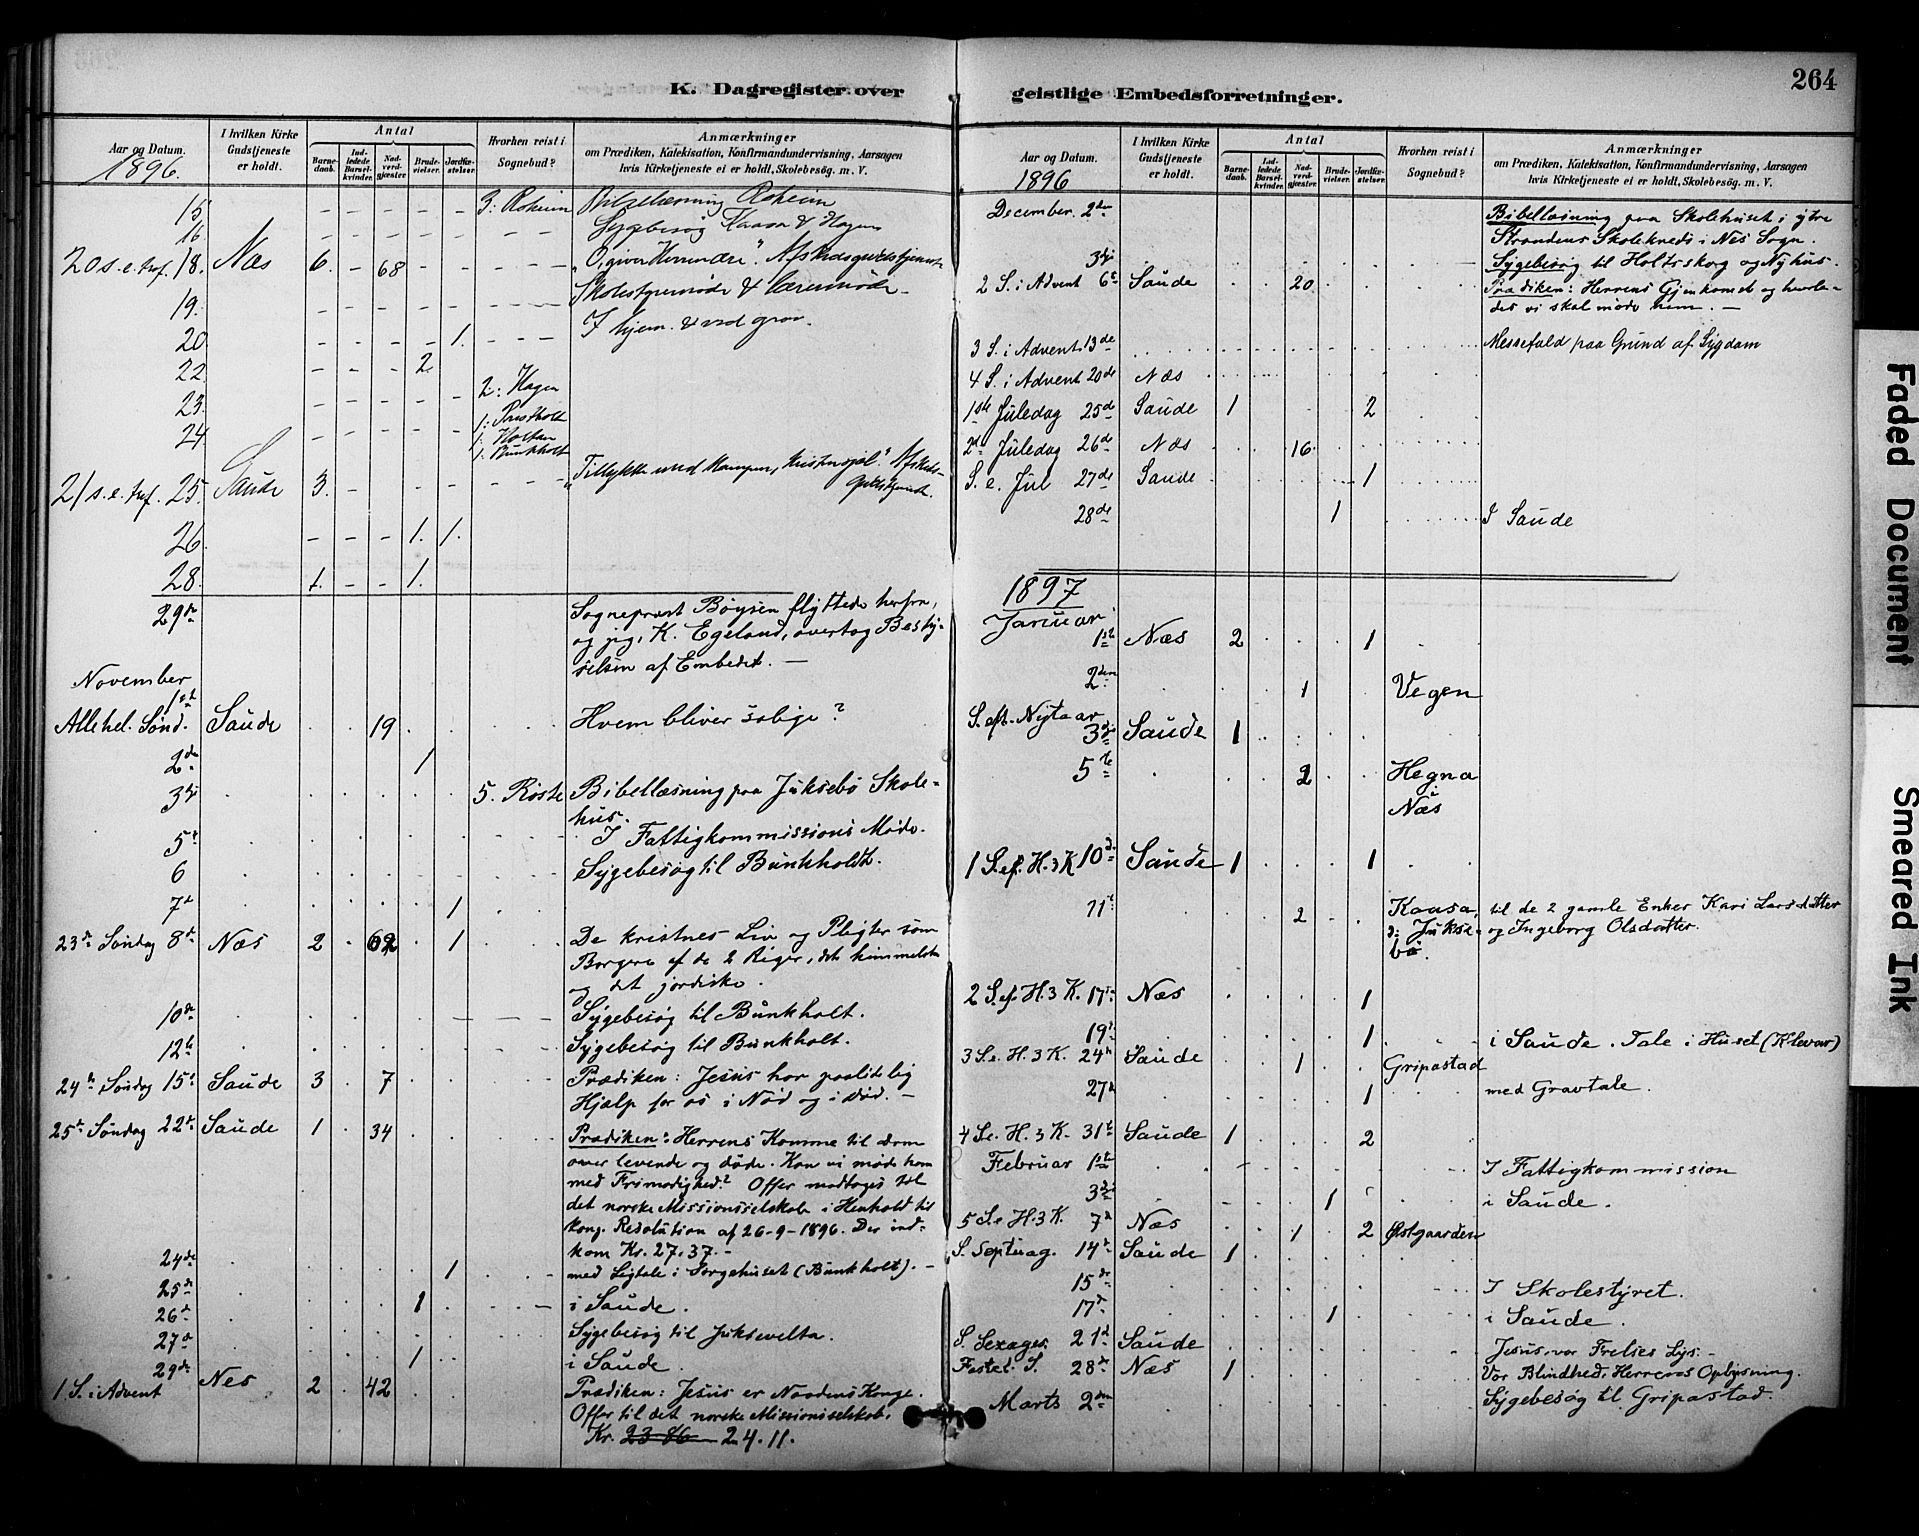 264
K. Dagregister over geistlige Embedsforretninger.
Aar og Datum.
I hvilken Kirke Gudstjeneste er holdt.
Antal
Barnedaab.
Indledede Barselkvinder.
Nadverdgjæster
Brudevielser.
Jordfæstelser
Hvorhen reist i Sognebud?
Anmærkninger
om Prædiken, Katekisation, Konfirmandundervisning, Aarsagen
hvis Kirketjeneste ei er holdt, Skolebesøg. m. V.
1896.
15 3: Roheim Bibellæsning Roheim
16 Sygebesøg Kaasa & Hagen
20 s. e. tref. 18. Næs 6 68 "O, giver Herren ære". Afskedsgudstjeneste
19. Skolestyremøde & læremøde
20 1. I hjem. & ved grav.
22 2
23. 2: Hagen
24 1: Præstholt
1: Holtan
1. Bunkholt
21 s. e. tref. 25. Saude 3. "Tillykke med Kampen, kristensjæl". Afskeds-
gudstjeneste.
26 1. 1.
28. 1. 1.
29de Sogneprest Böysen flyttede herfra,
og jeg, K. Egeland, overtog Besty-
relsen af Embedet. —
November
1ste
Allehel. Sønd. Saude 19 Hvem bliver salige?
2den 1
3dje 5. Røste Bibellæsning paa Juksebö Skole-
hus.
5te I Fattigkommissions Møde.
6 Sygebesøg til Bunkholdt.
7de 1
23de Søndag 8de Næs 2 62 1 De kristnes Liv og Pligter som
Borgere af de 2 Riger, det himmelske
og det jordiske.
10de Sygebesøg til Bunkholt.
12te Sygebesøg til Bunkholt.
24de Søndag 15de Saude 3 7 Prædiken: Jesus har paalidelig
Hjælp for os i Nød og i død. —
25de Søndag 22de Saude 1 34 Prædiken: Herrens Komme til dom
over levende og døde. Kan vi møde ham
med Frimodighed? Offer modtoges til
det norske Missionsselskab i Henhold til
kong. Resolution af 26-9-1896. Der ind-
kom Kr. 27.37. —
24de 1 med Ligtale i Sørgehuset (Bunkholt). —
25de 1 i Saude.
26de Sygebesøg til Juksevelta.
27de 1 i Saude.
29de
1 S. i Advent Nes 2 42 Prædiken: Jesus er Naadens Konge.
Offer til det norske Missionsselskab.
Kr. 23 86 24.11.
Aar og Datum.
I hvilken Kirke Gudstjeneste er holdt.
Antal
Barnedaab.
Indledede Barselkvinder.
Nadverdgjæster.
Brudevielser.
Jordfæstelser.
Hvorhen reist i Sognebud?
Anmærkninger
om Prædiken, Katekisation, Konfirmandundervisning, Aarsagen
hvis Kirketjeneste ei er holdt, Skolebesøg. m. V.
1896
December. 2den Bibellæsning paa Skolehuset i ytre
Strandens Skolekreds i Nes Sogn.
3dje Sygebesøg til Holtsskog og Nyhus.
2 S. i Advent 6te Saude 20 Prædiken: Herrens Gjenkomst og hvorle-
des vi skal møde ham. —
3 S. i Advent 13de Messefald paa Grund af Sygdom
4 S. i Advent 20de Næs
1ste Juledag 25de Saude 1 2
2d Juledag 26de Næs 16
S. e. Jul 27de Saude 1
28de 1 I Saude
1897
Januar
1ste Næs 2 1
2den 1 Vegen
S. eft. Nytaar
3dje Saude 1
5te 2 Hegna
i
Næs
1 S. ef. H. 3 K 10de Saude 1 1
11te 2 Kaasa, til de 2 gamle Enker Kari Larsdatter
Jukse- og Ingeborg Olsdatter.
bö.
2 S. ef. H. 3 K. 17de Næs 1
19de 1 i Saude. Tale i Huset (Klevar)
3 S. e. H. 3 K. 24de Saude 1 Gripastad
27de 1 med Gravtale.
4 S. e. H. 3 K. 31te Saude 1 2
Februar 1ste I Fattigkommission
3dje 1 i Saude.
5 S. e H. 3 K. 7de Næs 1 2 Østgaarden
S. Septuag. 14de Saude 1
15de I Skolestyret.
17de 1 i Saude.
S. Sexages. 21de Saude Jesus, vor Frelses Lys. —
Fastel. S. 28de Næs 1 Vor Blindhed, Herrens Oplysning.
Marts 2den Sygebesøg til Gripastad.
Faded Document
Smeared Ink